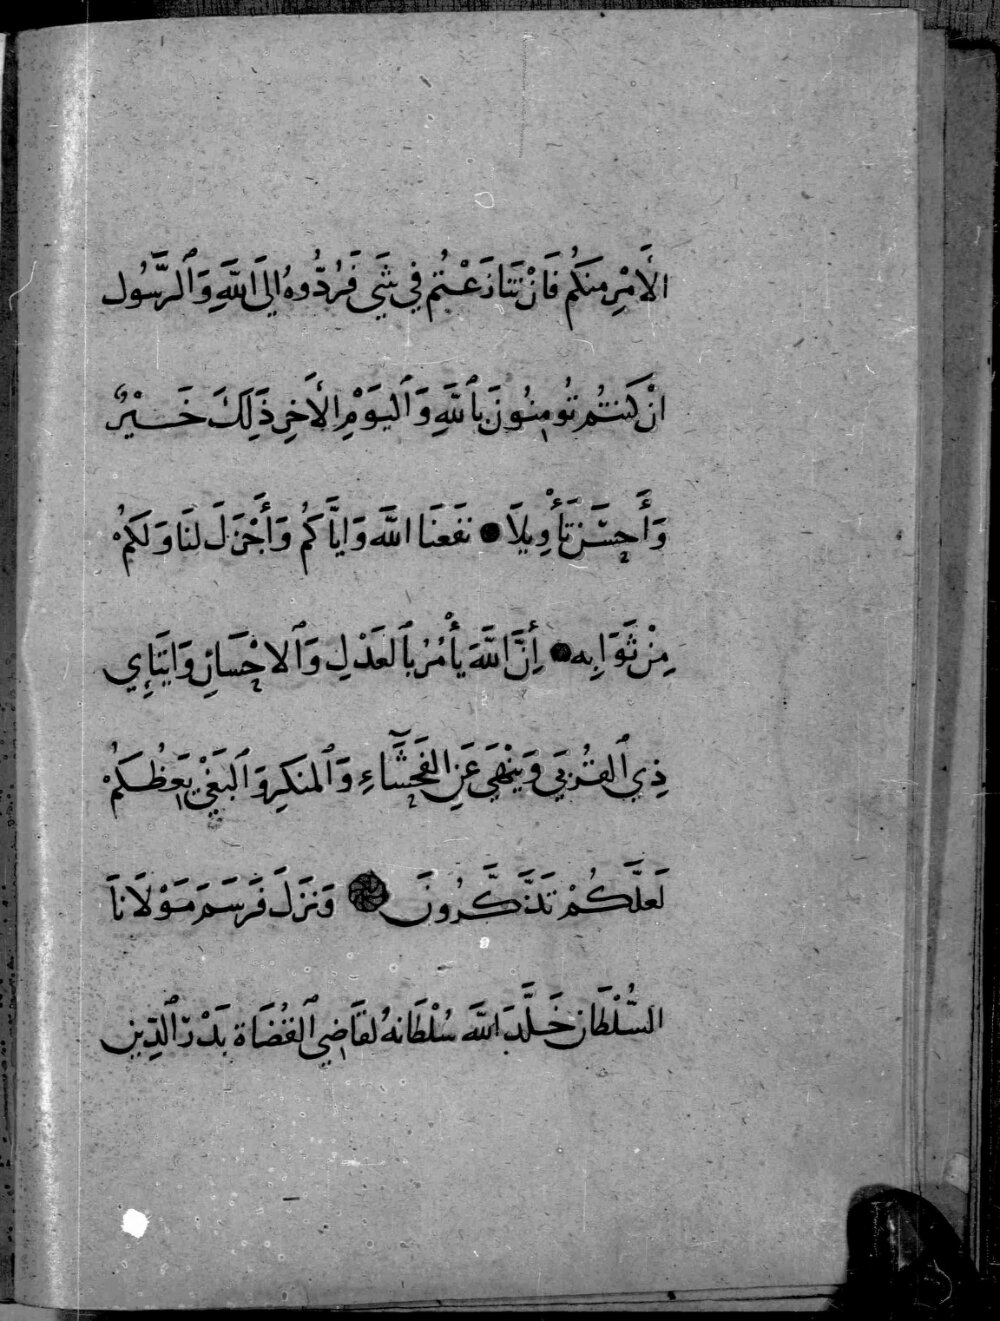 الأَمْرِ مِنكُم فَانْ تَنَازَعْتُم فِي شَيٍ فَرُدُّوهُ الَى اللَّهِ وَالرَّسُول
انْ كُنتُم تُومِنُونَ بِاللَّهِ وَالْيَوْمِ الأَخِرِ ذَلِكَ خَيْرٌ
وَأَحْسَنُ تَأْوِيلَا نَفَعَنَا اللَّه وَايَّاكُم وَأَجْزَلَ لَنَا وَلَكُمْ
مِنْ ثَوَابِه إِنَّ اللَّهَ يَأْمُرُ بِالْعَدْلِ وَالاحْسَانِ وَايتَإِي
ذِي الْقُرْبَي وَيَنْهَي عَنِ الفَحْشَاءِ وَالْمنكَرِ وَالْبَغْي يَعِظُكُمْ
لَعَلَّكُمْ تَذَّكَّرُونَ وَنزَلَ فَرَسَمَ مَوْلَانَا
السُّلْطَان خَلَّدَ اللَّه سُلْطَانهُ لقَاضِي الْقُضَاة بَدْر الدِّين